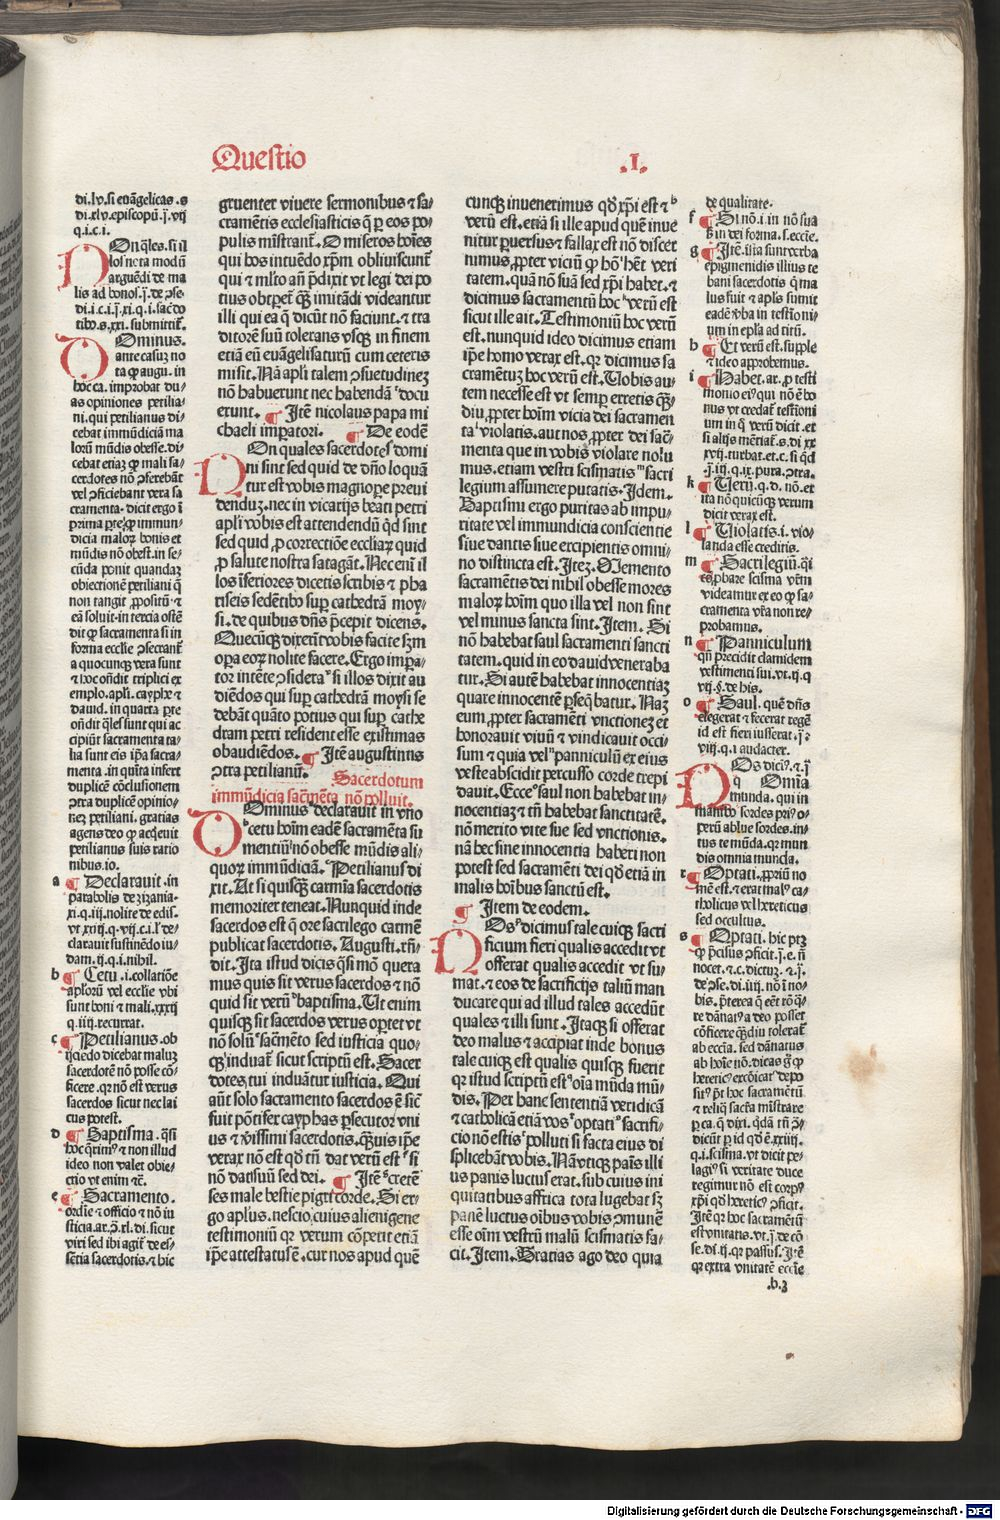 Questio .I.
di.lv.si euãgelicas.s
di.xlv.episcopũ.ĩ.vij
q.i.c.i.
NOn q̃les.si il
los nota modũ
arguẽdi de ma
lis ad bonos.
Dominus.
ante casuz no
ta ꝙ augu.in
hoc ca.improbat du/
as opiniones petilia/
ni.qui petilianus di/
cebat immũdiciã ma
loꝝ mũdis obesse.di/
cebat etiaꝫ ꝙ mali sa/
cerdotes nõ ↄferebãt
vel ↄficiebant vera sa
cramenta.dicit ergo ĩ
dicia maloꝝ bonis et
mũdis nõ obest.in se/
cũda ponit quandaꝫ
obiectionẽ petiliani q̃
non tangit ꝓpositũ.⁊
eã soluit.in tercia ostẽ
dit ꝙ sacramenta si in
forma ecclie ↄsecrant᷑
a quocunqꝫ vera sunt
⁊ hoc oñdit triplici ex
emplo.apli.cayphe ⁊
dauid.in quarta p̱te
oñdit q̃les sunt qui ac
cipiũt sacramenta ta/
lia sunt eis ip̃a sacra/
menta.in quĩta infert
duplicẽ cõclusionem
ↄtra duplicẽ opinio/
neꝫ petiliani.gratias
agens deo ꝙ acq̃euit
petilianus suis ratio
nibus.io.
a ¶ Declarauit.in
parabolis de zizania.
xi.q.iii.nolite de edis.
clarauit sustinẽdo iu/
dam.ij.q.i.nihil.
b ¶ Cetu.i.collatiõe
ap̃loꝝ vel ecclie vbi
sunt boni ⁊ mali.xxxij
q.iiij.recurrat.
c ¶ Petilianus.ob
ijciẽdo dicebat maluꝫ
sacerdotẽ nõ posse cõ/
ficere.qꝛ nõ est verus
sacerdos sicut nec lai
cus potest.
d ¶ Baptisma.q̃si
hoc q̃rim⁹ ⁊ non illud
ideo non valet obie/
ctio vt enim ⁊c̃.
e ¶ Sacramento.
ordĩe ⁊ officio ⁊ nõ iu
sticia.
viri sed ibi agit᷑ de es/
sẽtia sacerdotis.⁊ hic
gruenter viuere sermonibus ⁊ sa/
cramẽtis ecclesiasticis q̃ ꝑ eos po/
pulis mĩstrant᷑. O miseros hoĩes
qui hos intuẽdo xp̃m obliuiscunt᷑
qui ⁊ ml̃to añ p̃dixit vt legi dei po
tius obtꝑet᷑ q̃ꝫ imitãdi videantur
illi qui ea q̃ dicũt nõ faciunt.⁊ tra
ditorẽ suũ tolerans vsqꝫ in finem
etiã eũ euãgelisaturũ cum ceteris
misit. Nã apli talem ↄsuetudineꝫ
nõ habuerunt nec habendã docu
erunt. ¶ Itẽ nicolaus papa mi
chaeli imꝑatori. ¶ De eodẽ
NOn quales sacerdotes domi
ni sint sed quid de dño loquãt᷑
tur est vobis magnope preui
denduꝫ.nec in vicarijs beati petri
apl̃i vobis est attendendũ qd̃ sint
sed quid ꝓ correctiõe eccliaꝝ quid
ꝓ salute nostra satagãt. Nec enĩ il
los ĩferiores dicetis scribis ⁊ pha
riseis sedẽtibo suꝑ cathedrã moy/
si.de quibus dñs p̃cepit dicens.
Quecũqꝫ dixerĩt vobis facite sꝫm
oꝑa eoꝝ nolite facere. Ergo imꝑa/
tor intẽte ↄsidera si illos dixit au
diẽdos qui suꝑ cathedrã moysi se
debãt quãto potius qui suꝑ cathe
dram petri resident esse existimas
obaudiẽdos. ¶ Itẽ augustinus
ↄtra petilianũ. Sacerdotum
immũdicia sac̃mẽta nõ polluit.
DOminus declarauit in vno
cetu hoĩm eadẽ sacramẽta su
mentiũ nõ obesse mũdis ali/
quoꝝ immũdiciã. Petilianus di
xit. At si quisqꝫ carmĩa sacerdotis
memoriter teneat. Nunquid inde
sacerdos est q̃ ore sacrilego carmẽ
publicat sacerdotis. Augusti.rñ/
dit. Ita istud dicis q̃si mõ quera
mus quis sit verus sacerdos ⁊ nõ
quid sit verũ baptisma. Ut enim
quisqꝫ sit sacerdos verus oꝑtet vt
nõ solũ sac̃mẽto sed iusticia quo/
qꝫ induat᷑ sicut scriptũ est. Sacer
dotes tui induãtur iusticia. Qui
aũt solo sacramento sacerdos ẽ sic̃
fuit põtifex cayphas ꝑsecutor vni
us ⁊ v̾issimi sacerdotis. Quis ip̃e
verax nõ est qd̃ tñ dat verũ est si
nõ dat suũ sed dei. ¶ Itẽ creten̾
ses male bestie pigri corde. Si er/
go aplus.nescio cuius alienigene
testimoniũ qꝛ verum cõperit etiã
ip̃e attestatus ẽ.cur nos apud quẽ
cunqꝫ inuenerimus qd̃ xp̃i est ⁊
verũ est.etiã si ille apud quẽ inue
nitur ꝑuersus ⁊ fallax est nõ discer
nimus ꝓpter viciũ ꝙ hõ h̾et veri
tatem.quã nõ suã sed xp̃i habet.⁊
dicimus sacramentũ hoc verũ est
sicut ille ait. Testimoniũ hoc verũ
est.nunquid ideo dicimus etiam
ip̃e homo verax est.qꝛ dicimus sa
cramẽtuꝫ hoc verũ est. Uobis au/
tem necesse est vt semꝑ erretis q̃ꝫ/
diu ꝓpter hoĩm vicia dei sacramen
ta violatis.aut nos ꝓpter dei sac̃/
menta que in vobis violare nolu
mus.etiam vestri scismatis sacri
legium assumere putatis. Idem.
Baptismi ergo puritas ab impu/
ritate vel immundicia conscientie
siue dantis siue ercipientis omni/
no distincta est. Iteꝫ. Memento
sacramẽtis dei nihil obesse mores
maloꝝ hoĩm quo illa vel non sint
vel minus sancta sint. Itẽm. Si
nõ habebat saul sacramenti sancti
tatem.quid in eo dauid veneraba
tur. Si autẽ habebat innocentiaꝫ
quare innocentẽ ꝑseq̃batur. Naꝫ
eum ꝓpter sacramẽti vnctionez et
honorauit viuũ ⁊ vindicauit occi/
sum ⁊ quia vel panniculũ ex eius
veste abscidit percusso corde trepi
dauit. Ecce saul non habebat in/
nocentiaꝫ ⁊ tñ habebat sanctitatẽ.
nõ merito vite sue sed vnctionis.
nã hec sine innocentia haberi non
potest sed sacramẽti dei qd̃ etiã in
malis hoĩbus sanctũ est.
¶ Item de eodem.
NOs dicimus tale cuiqꝫ sacri
ficium fieri qualis accedit vt
offerat qualis accedit vt su/
mat.⁊ eos de sacrificijs taliũ man
ducare qui ad illud tales accedũt
quales ⁊ illi sunt. Itaqꝫ si offerat
deo malus ⁊ accipiat inde bonus
tale cuiqꝫ est qualis quisqꝫ fuerit
qꝛ istud scriptũ est oĩa mũda mũ/
dis. Per hanc sententiã veridicã
⁊ catholicã etiã vos optati sacrifi/
cio nõ estis polluti si facta eius di
splicebãt vobis. Nã vtiqꝫ pãis illi
us panis luctus erat.sub cuius ini
quitatibus affrica tota lugebat sꝫ
panẽ luctus oĩbus vobis ↄmunẽ
esse oĩm vestrũ malũ scismatis fa/
cit. Item. Gratias ago deo quia
de qualitate.
f ¶ Si nõ.i.in nõ sua
sꝫ in dei forma.s.eccie.
g ¶ Itẽ.ista sunt verba
epigmenidis illius te
bani sacerdotis q̃ ma
lus fuit ⁊ aplus sumit
eadẽ v̾ba in testĩoni/
um in epl̃a ad titũ.
h ¶ Et verũ est.supple
⁊ ideo approbemus.
i ¶ Habet.ar.ꝓ testi
monio ei⁹ qui nõ ẽ bo
nus vt credat᷑ testĩoni
um in q̃ verũ dicit.et
k ¶ Uerũ.q.d.nõ.et
ita nõ quicũqꝫ verum
dicit verax est.
l ¶ Uiolatis.i.vio/
landa esse creditis.
m ¶ Sacrilegiũ.q̃i
videamur ex eo ꝙ sa/
cramenta vr̃a non re/
probamus.
n ¶ Panniculum
qñ precidit clamidem
vestimenti sui.vt.ij.q
vij.§.de his.
o ¶ Saul.quẽ dñs
elegerat ⁊ fecerat regẽ
id est fieri iusserat.
viij.q.i audacter.
NOs dici⁹.⁊.ĩ
q Omnia
munda.qui in
manibo sordes pri⁹ o/
perũ ablue sordes.in/
tus te mũda.qꝛ mun
dis omnia munda.
r ¶ Optati.ꝓpriũ no
mẽ est.⁊ erat mal⁹ ca/
tholicus vel hereticus
sed occultus.
s ¶ Optati.hic ptꝫ
re dãnat⁹ a deo posset
cõficere q̃ꝫdiu tolerat᷑
ab eccĩa.sed dãnatus
ab hoĩe nõ.dicas g̃ ꝙ
heretic⁹ excõicat⁹ depo
sit⁹ p̃t hoc sacramẽtũ
⁊ reliq̃ sacr̃a mĩstrare
q.i.scisma.vt dicit pe/
lagi⁹ si veritate duce
regimur nõ est corp⁹
xp̃i qd̃ heretic⁹ ↄficit.
Itẽ qꝛ hoc sacramẽtũ
qꝛ extra vnitatẽ eccĩe
.b.3
Digitalisierung gefördert durch die Deutsche Forschungsgemeinschaft - DFG